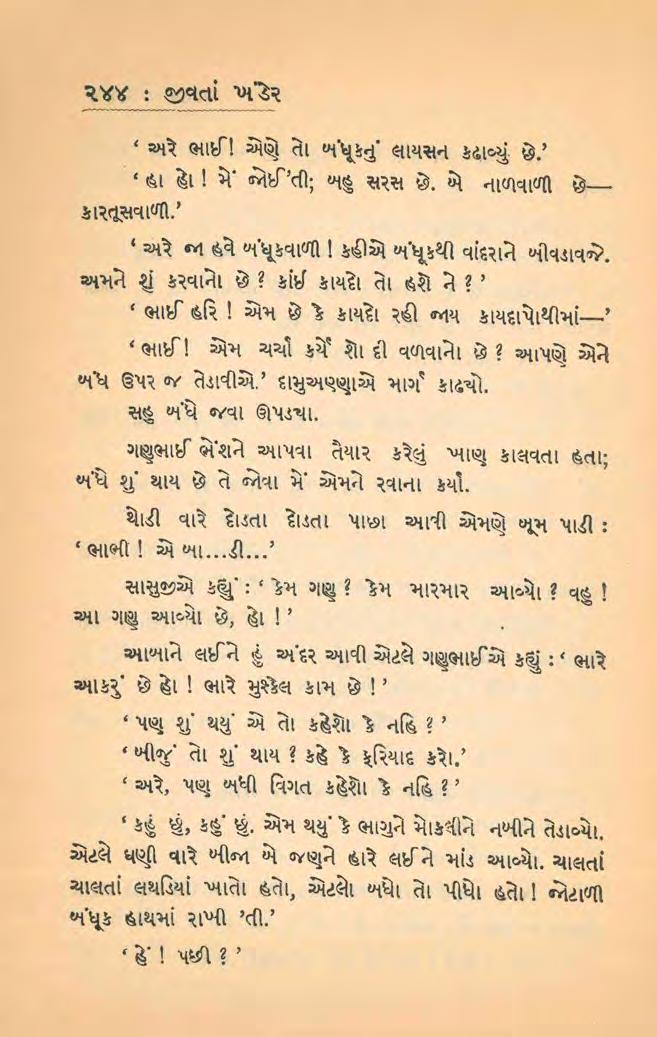 ૨૪૪ : જીવતાં ખંડેર
‘ અરે ભાઈ! એણે તો બંધૂકનું લાયસન કઢાવ્યું છે.’
‘ હા હો ! મેં જોઈ’તી; બહુ સરસ છે. બે નાળવાળી છે—
કારતૂસવાળી.’
‘ અરે જા હવે બંધૂકવાળી ! કહીએ બંધૂકથી વાંદરાને બીવડાવજે.
અમને શું કરવાનો છે ? કાંઈ કાયદો તો હશે ને ? ’
‘ ભાઈ હરિ ! એમ છે કે કાયદો રહી જાય કાયદાપોથીમાં—’
‘ ભાઈ! એમ ચર્ચા કર્યે શો દી વળવાનો છે ? આપણે એને
બંધ ઉપર જ તેડાવીએ.’ દામુઅણ્ણાએ માર્ગ કાઢ્યો.
સહુ બંધે જવા ઊપડ્યા.
ગણુભાઈ ભેંશને આપવા તૈયાર કરેલું ખાણ કાલવતા હતા;
બંધે શું થાય છે તે જોવા મેં એમને રવાના કર્યા.
થોડી વારે દોડતા દોડતા પાછા આવી એમણે બૂમ પાડી :
‘ ભાભી ! એ બા...ડી...’
સાસુજીએ કહ્યું : ‘ કેમ ગણુ ? કેમ મારમાર આવ્યો ? વહુ !
આ ગણુ આવ્યો છે, હો ! ’
આબાને લઈને હું અંદર આવી એટલે ગણુભાઈએ કહ્યું : ‘ ભારે
આકરું છે હો ! ભારે મુશ્કેલ કામ છે ! ’
‘ પણ શું થયું એ તો કહેશો કે નહિ ? ’
‘ બીજું તો શું થાય ? કહે કે ફરિયાદ કરો.’
‘ અરે, પણ બધી વિગત કહેશો કે નહિ ? ’
‘ કહું છું, કહું છું. એમ થયું કે ભાગુને મોકલીને નખીને તેડાવ્યો.
એટલે ઘણી વારે બીજા બે જણને હારે લઈને માંડ આવ્યો. ચાલતાં
ચાલતાં લથડિયાં ખાતો હતો, એટલો બધો તો પીધો હતો ! જોટાળી
બંધૂક હાથમાં રાખી ’તી.’
‘ હેં ! પછી ? ’